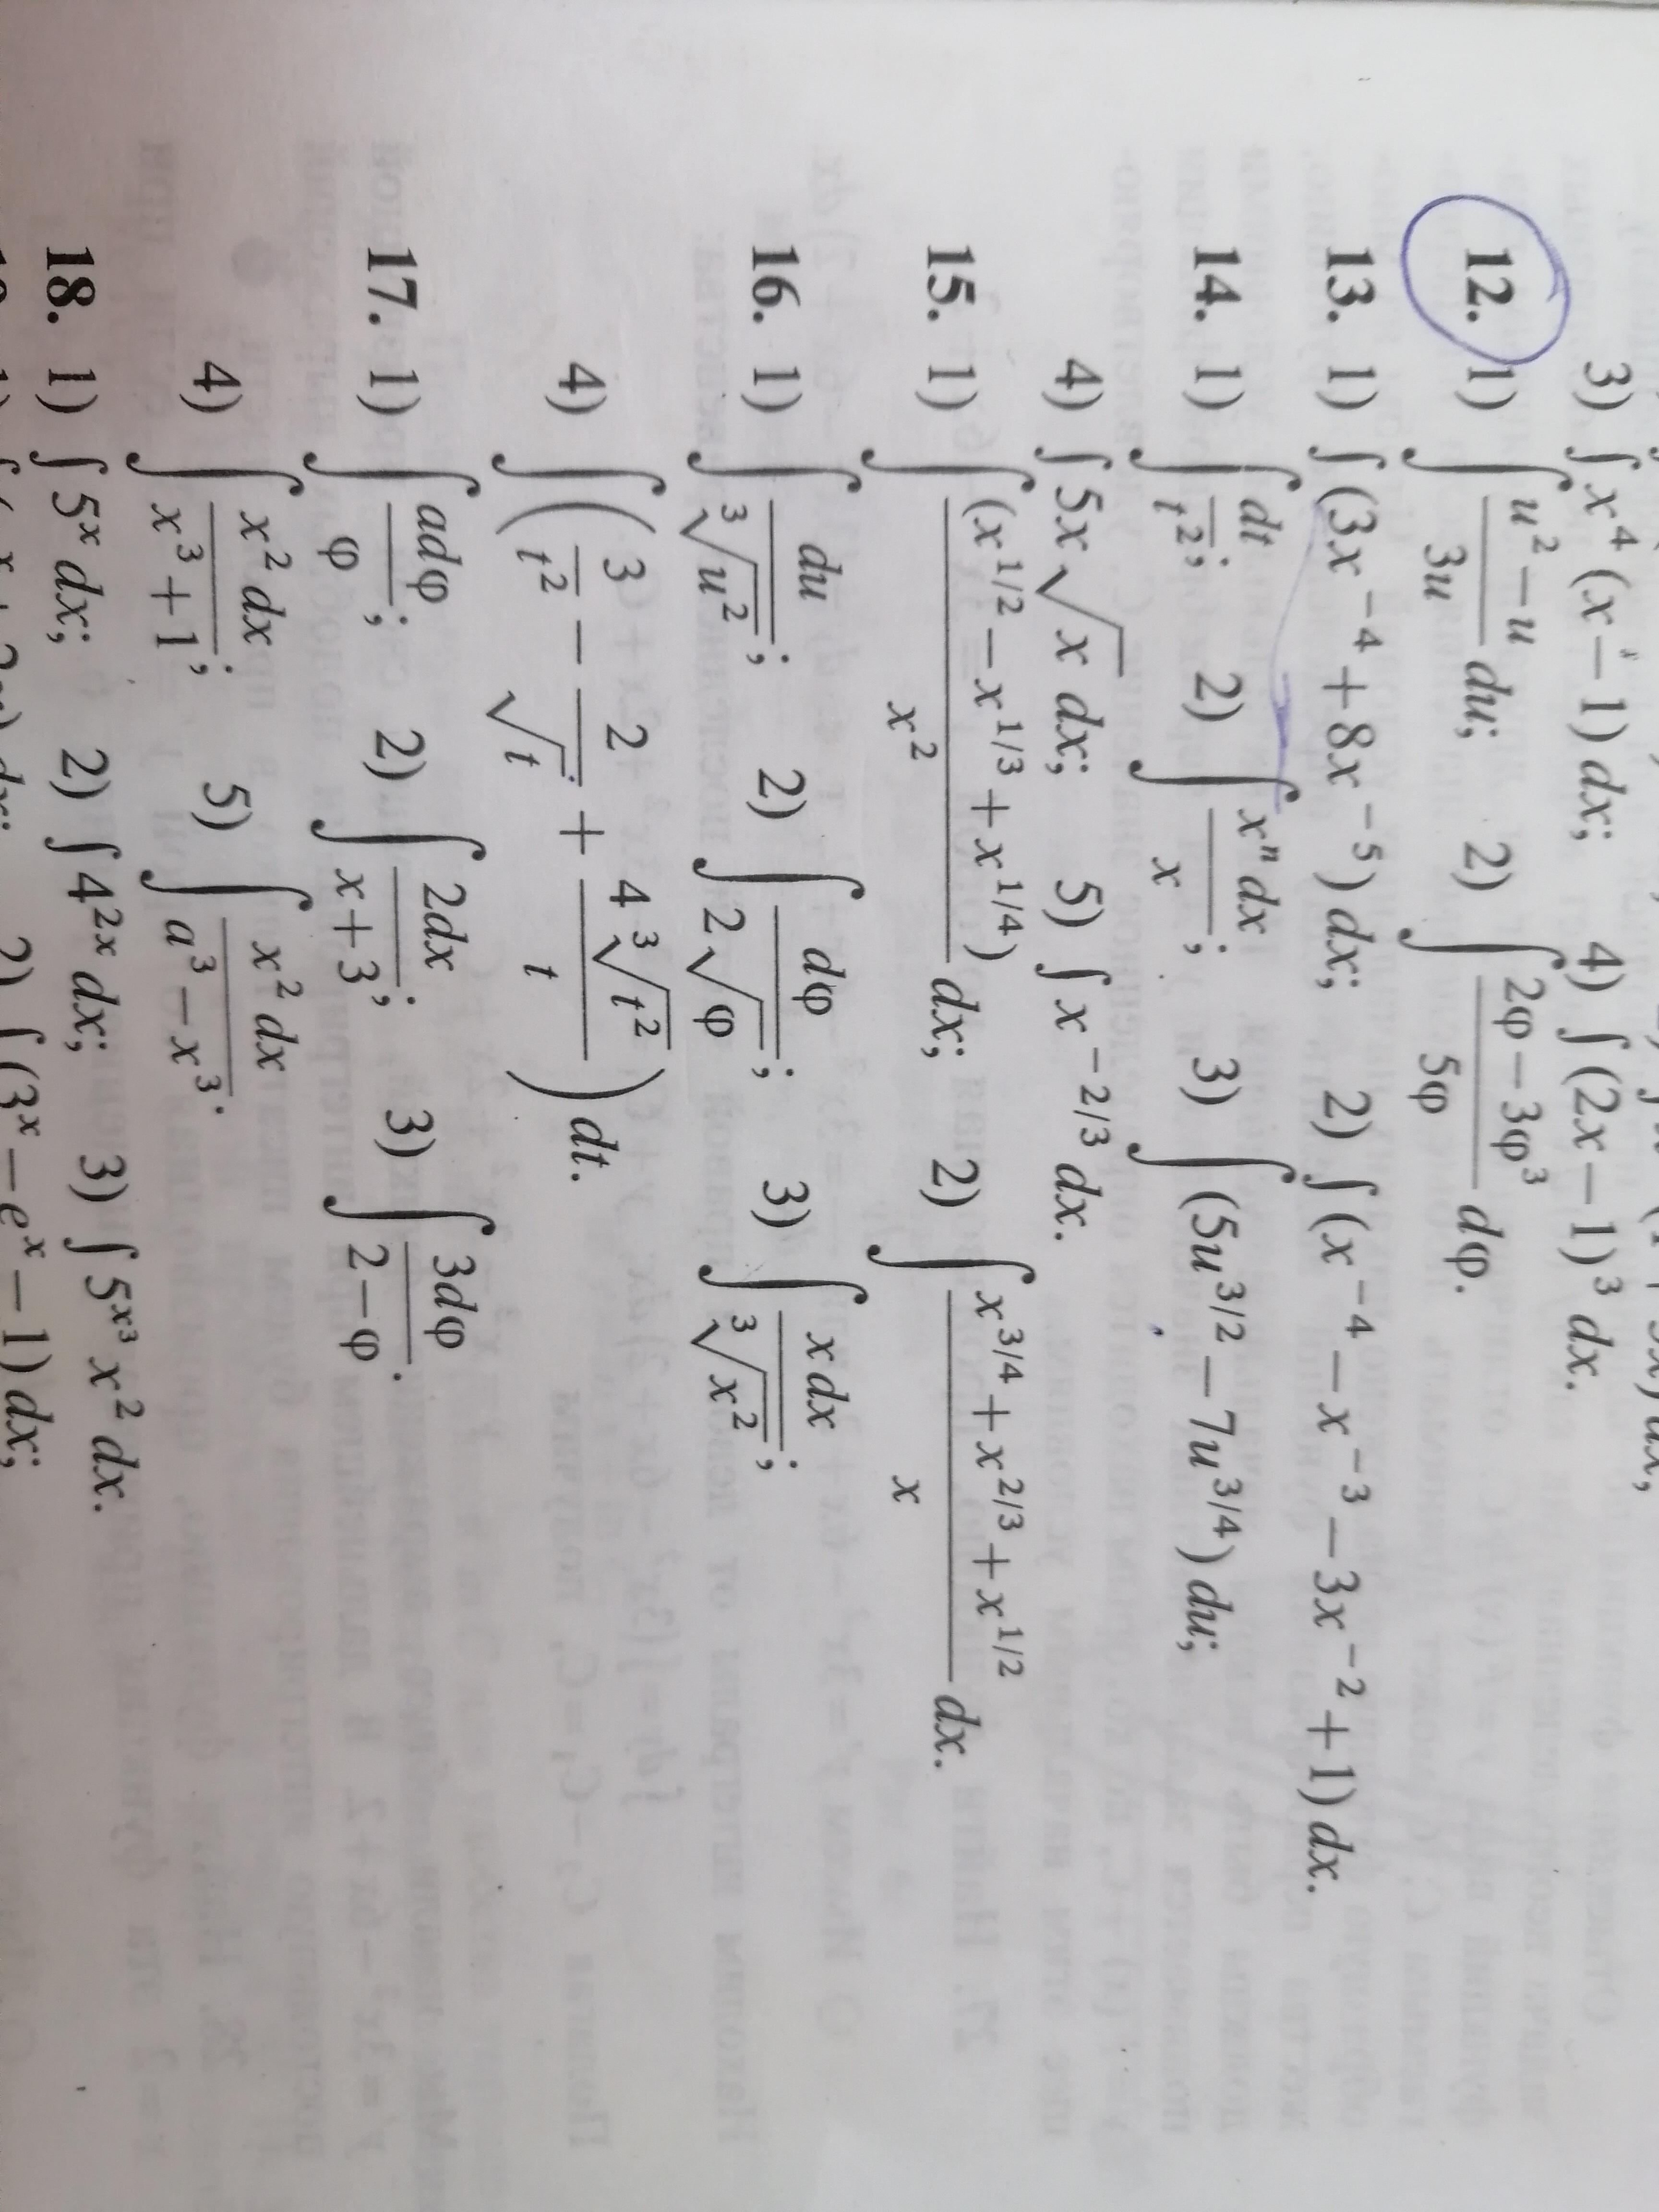 3) ∫ x⁴ (x − 1) dx; 4) ∫ (2x − 1)³ dx.
12. 1) ∫ (u² − u)/(3u) du; 2) ∫ (2φ − 3φ³)/(5φ) dφ.
13. 1) ∫ (3x⁻⁴ + 8x⁻⁵) dx; 2) ∫ (x⁻⁴ − x⁻³ − 3x⁻² + 1) dx.
14. 1) ∫ dt/t²; 2) ∫ xⁿ dx/x; 3) ∫ (5u^{3/2} − 7u^{3/4}) du;
4) ∫ 5x√x dx; 5) ∫ x^{−2/3} dx.
15. 1) ∫ (x^{1/2} − x^{1/3} + x^{1/4})/x² dx; 2) ∫ (x^{3/4} + x^{2/3} + x^{1/2})/x dx.
16. 1) ∫ du/∛(u²); 2) ∫ dφ/(2√φ); 3) ∫ x dx/∛(x²);
4) ∫ (3/t² − 2/√t + 4∛(t²)/t) dt.
17. 1) ∫ adφ/φ; 2) ∫ 2dx/(x + 3); 3) ∫ 3dφ/(2 − φ).
4) ∫ x² dx/(x³ + 1); 5) ∫ x² dx/(a³ − x³).
18. 1) ∫ 5ˣ dx; 2) ∫ 4²ˣ dx; 3) ∫ 5^{x³} x² dx.
2) ∫ (3ˣ − eˣ − 1) dx;